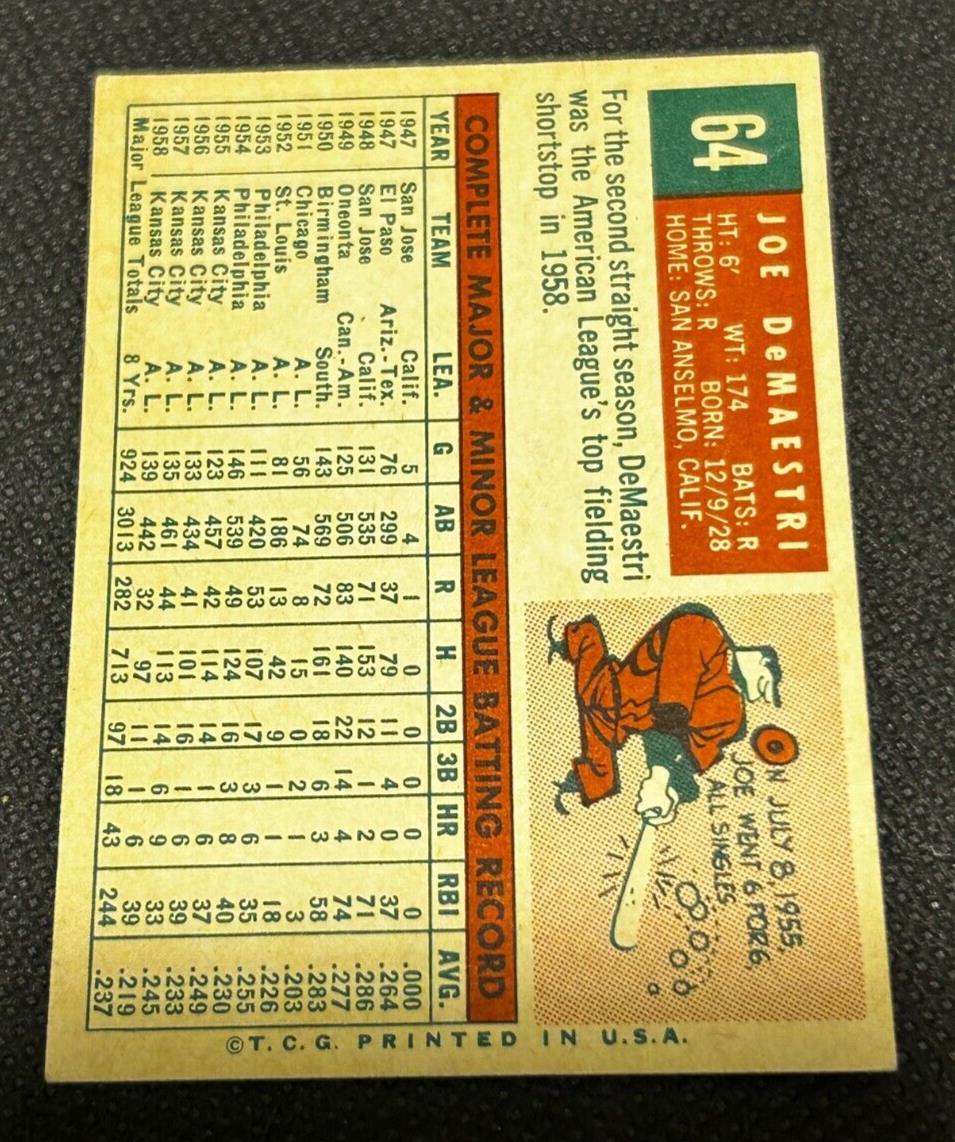 64
JOE DeMAESTRI
HT: 6' WT: 174 BATS: R
THROWS: R BORN: 12/9/28
HOME: SAN ANSELMO, CALIF.
For the second straight season, DeMaestri
was the American League's top fielding
shortstop in 1958.
ON JULY 8, 1955,
JOE WENT 6 FOR 6,
ALL SINGLES
COMPLETE MAJOR & MINOR LEAGUE BATTING RECORD
YEAR TEAM LEA. G AB R H 2B 3B HR RBI AVG.
1947 San Jose Calif. 5 4 1 0 0 0 0 0 .000
1947 El Paso Ariz.-Tex. 76 299 37 79 11 4 0 37 .264
1948 San Jose Calif. 131 535 71 153 12 1 2 71 .286
1949 Oneonta Can.-Am. 125 506 83 140 22 14 4 74 .277
1950 Birmingham South. 143 569 72 161 18 6 3 58 .283
1951 Chicago A. L. 56 74 8 15 0 2 1 3 .203
1952 St. Louis A. L. 81 186 13 42 9 1 1 18 .226
1953 Philadelphia A. L. 111 420 53 107 17 3 6 35 .255
1954 Philadelphia A. L. 146 539 49 124 16 3 8 40 .230
1955 Kansas City A. L. 123 457 42 114 14 1 6 37 .249
1956 Kansas City A. L. 133 434 41 101 16 1 6 39 .233
1957 Kansas City A. L. 135 461 44 113 14 6 9 33 .245
1958 Kansas City A. L. 139 442 32 97 11 1 6 39 .219
Major League Totals 8 Yrs. 924 3013 282 713 97 18 43 244 .237
©T.C.G. PRINTED IN U.S.A.